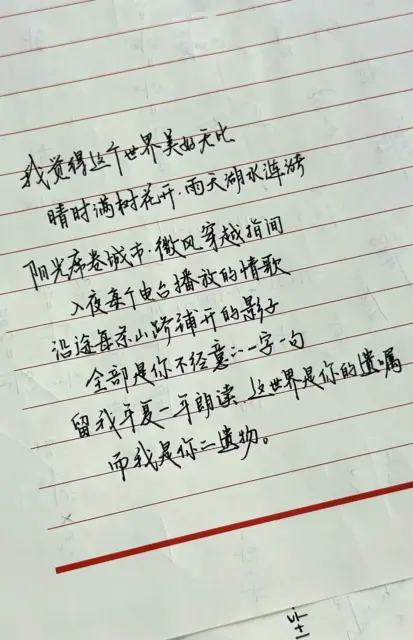 我觉得这个世界美好无比
晴时满树花开.雨天湖水涟漪
阳光席卷城市.微风穿越指间
入夜每个电台播放的情歌
沿途每条山路铺开的影子
全部是你不经意一字一句
留我年复一年朗读.这世界是你的遗嘱
而我是你二遗物。